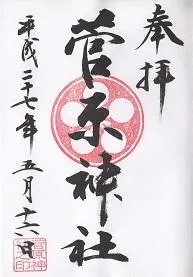 奉拝
菅原神社
平成二十七年五月十六日